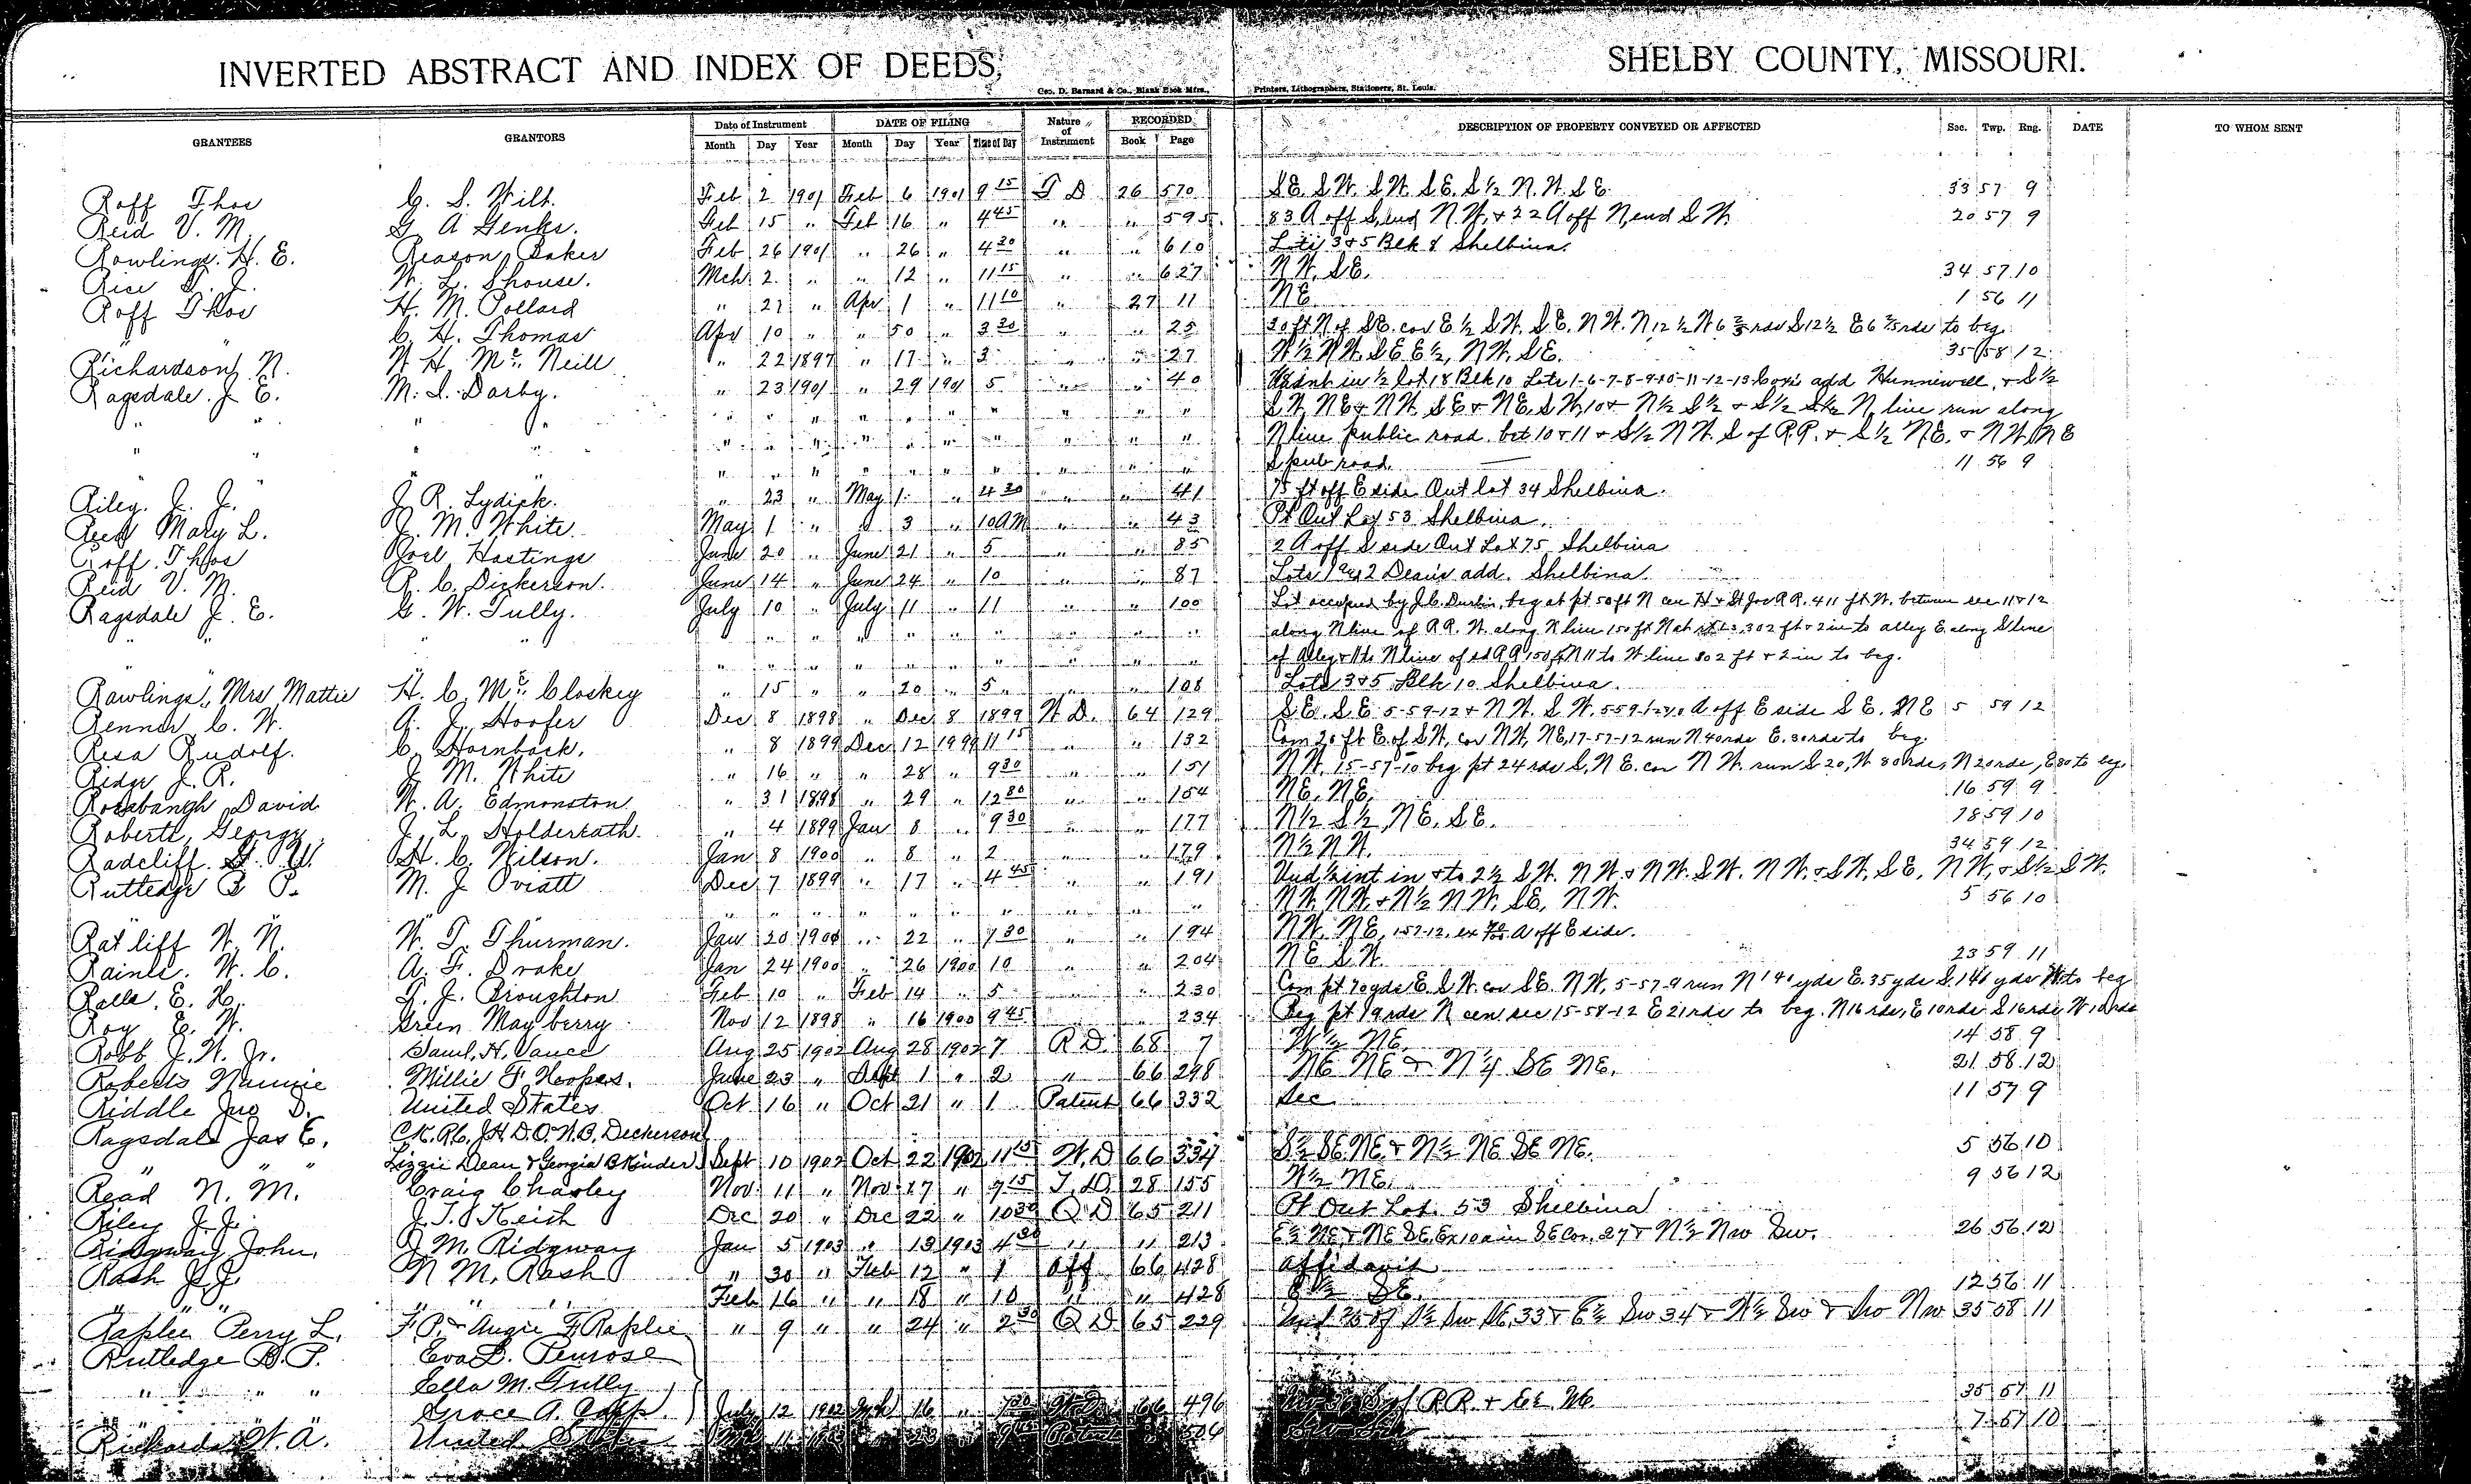 INVERTED ABSTRACT AND INDEX OF DEEDS, SHELBY COUNTY, MISSOURI.
Geo. D. Barnard & Co., Blank Book Mfrs., Printers, Lithographers, Stationers, St. Louis.
GRANTEES GRANTORS Date of Instrument DATE OF FILING Nature of Instrument RECORDED DESCRIPTION OF PROPERTY CONVEYED OR AFFECTED Sec. Twp. Rng. DATE TO WHOM SENT
Month Day Year Month Day Year Time of Day Book Page
Roff Thos C. S. Wilt. Feb 2 1901 Feb 6 1901 9 15 T D 26 570 SE. SW. SW. SE. S½ N.W. SE. 33 57 9
Reid V. M. G A Jenks. Feb 15 " Feb 16 " 4 45 " " 595 83 A off S. end N.W. & 22 A off N, end S W. 20 57 9
Rowlings. H. E. Reason Baker Feb 26 1901 " 26 " 4 30 " " 610 Lots 3 & 5 Blk 8 Shelbina.
Rice W. L. Shouse. Mch 2 " " 12 " 11 15 " " 627 N W. SE. 34 57 10
Roff Thos H. M. Pollard " 21 " Apr 1 " 11 10 " 27 11 NE 1 56 11
" C. H. Thomas Apr 10 " " 30 " 3 30 " " 25 20 ft N of SE. cor E ½ S W. S E. N W. N 12 ½ W 6 ⅔ rds S 12 ½ E 6 rds to beg.
Richardson N. W H. Mc Neill " 22 1897 " 17 " 3 " " 27 W ½ N W. SE E ½, N W. SE. 35 58 12
Ragsdale J E. M. I. Darby. " 23 1901 " 29 1901 5 " " 40 int in ½ lot 18 Blk 10 Lots 1-6-7-8-9-10-11-12-13 add Hunnewell, & S ½
" " " " " " " " " " " " " S W, NE & N W. SE & NE, S W, 10 & N ½ S ½ & S ½ S ½ N line run along
" " " " " " " " " " " " " N line public road bet 10 & 11 & S ½ N W. S of R.R. & S ½ NE. & N W. NE
" " " " " " " " " " " " S pub road. 11 56 9
Riley. J. J. J R. Lydick. " 23 " May 1 " 4 30 " " 41 75 ft off E side Out lot 34 Shelbina.
Reed Mary L. J. M. White May 1 " " 3 " 10 AM " " 43 Pt Out Lot 53 Shelbina.
Roff. Thos Joel Hastings June 20 " June 21 " 5 " " 85 2 A off S side Out Lot 75 Shelbina
Reid V. M. R. C. Dickerson. June 14 " June 24 " 10 " " 87 Lots 1 & 2 Dean's add. Shelbina.
Ragsdale J. E. G. W. Tully. July 10 " July 11 " 11 " " 100 Lot occupied by J. C. Durbin, beg at pt 50 ft N H & St Joe R.R. 411 ft W. between sec 11 & 12
" " " " " " " " " " " along N line of R.R. W. along N line 150 ft N at 302 ft & 2 in to alley E. along S line
" " " " " " " " " " " of Alley N line of sd R R 150 ft N 11 to W line 302 ft & 2 in to beg.
Rawlings, Mrs Mattie H. C. Mc Closkey " 15 " " 20 " 5 " " 108 Lots 3 & 5 Blk 10 Shelbina.
Renner C. W. A. J. Hoofer Dec 8 1898 " Dec 8 1899 W D. 64 129 SE. SE 5-59-12 & N W. S W. A off E side SE. NE 5 59 12
Resa Rudolf. C. Hornback. " 8 1899 Dec 12 1899 11 15 " " 132 Com 20 ft E. of S W, cor N W, NE, 17-57-12 run N 40 rds E. 30 rds to beg.
Ridge J. R. J M. White " 16 " " 28 " 9 30 " " 151 N W. 15-57-10 beg pt 24 rds S, N E. cor N W. run S 20, W 80 rds, N 20 rds, E 80 to beg.
Rosabaugh David W. A. Edmonston " 31 1898 " 29 " 12 30 " " 154 NE. NE. 16 59 9
Roberts, George J. L. Holderrath " 4 1899 Jan 8 " 9 30 " " 177 N ½ S ½ NE. SE. 28 59 10
Radcliff H. C. Wilson. Jan 8 1900 " 8 " 2 " " 179 N ½ N W. 34 59 12
Rutledge B P. M. J Oviatt Dec 7 1899 " 17 " 4 45 " " 191 Und ½ int in & to 2 ½ S W. N W. & N W. S W. N W. & S W. SE, N W, & S ½ S W.
" " " " " " " " " N W. N W. & N ½ N W. SE, N W. 5 56 10
Ratliff W. N. W. T. Thurman. Jan 20 1900 " 22 " 1 30 " " 194 N W. NE, A off E side.
Rainls. W. C. A. F. Drake Jan 24 1900 " 26 1900 10 " " 204 NE S W. 23 59 11
Ralls. E. H. T. J. Broughton Feb 10 " Feb 14 " 5 " " 230 Com pt 70 yds E. S W. cor SE. N W, 5-57-9 run N 140 yds E. 35 yds S. 140 yds W. to beg
Roy E. W. Green Mayberry Nov 12 1898 " 16 1900 9 45 " 234 Beg pt 19 rds N cen sec 15-58-12 E 21 rds to beg. N 16 rds, E 10 rds S 16 rds W 10 rds
Robb J. W. Jr. Saml. H. Vance Aug 25 1902 Aug 28 1902 7 R D. 68 7 W ½ NE. 14 58 9
Roberts Nannie Millie F. Hoopers. June 23 " Sept 1 " 2 " 66 248 NE NE & N ½ SE NE. 21 58 12
Riddle Jno D. United States Oct 16 " Oct 21 " 1 Patent 66 332 Sec 11 57 9
Ragsdale Jas E. C.K. R.C. J.H. D.O. W.B. Dickerson
" " " Lizzie Dean & Georgia B Kinder Sept 10 1902 Oct 22 1902 11 15 W. D 66 334 S ½ SE NE & N ½ NE SE NE. 5 56 10
Read N. M. Craig Charley Nov 11 " Nov 17 " 9 15 T. D. 28 155 W ½ NE. 9 56 12
Riley J. J. J. T. Keith Dec 20 " Dec 22 " 10 30 Q D 65 211 Pt Out Lot. 53 Shelbina
Ridgway John. J M. Ridgway Jan 5 1903 " 13 1903 4 30 " " 213 E ½ NE & NE SE, Ex 10 a in SE Cor. 27 & N ½ Nw Sw. 26 56 12
Rash J. J. N M. Rash " 30 " Feb 12 " 1 Aff 66 428 Affidavit
" " " " " " Feb 16 " " 18 " 10 " " 428 S ½ SE. 12 56 11
Raplee Perry L. F. P. & Angie F Raplee " 9 " " 24 " 2 30 Q D 65 229 Und of S ½ Sw SE, 33 & E ½ Sw 34 & W ½ Sw & Sw Nw 35 58 11
Rutledge B. P. Eva L. Penrose
" " " Ella M. Tully
" " Grace A. July 12 1902 16 " 66 496 S of R.R. + E ½ NE 35 57 11
Richards W. A. United States 11 506 Sw 7 57 10